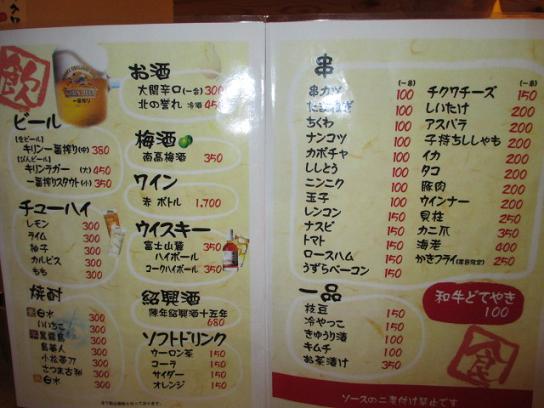 飲
ビール
【生ビール】
キリン一番搾り(中) 380
【びんビール】
キリンラガー (大) 450
一番搾りスタウト(小) 350
チューハイ
レモン 300
ライム 300
柚子 300
カルピス 300
もも 300
焼酎
白水 300
いいちこ 300
黒霧島 300
島美人 300
300
さつま古秘 300
白水 300
お酒
大関辛口(一合) 300
北の誉れ 冷酒 450
梅酒
南高梅酒 350
ワイン
赤 ボトル 1,700
ウイスキー
富士山麓 ハイボール 350
コークハイボール 350
紹興酒
陳年紹興酒十五年
680
ソフトドリンク
ウーロン茶 150
コーラ 150
サイダー 150
オレンジ 150
串
(一本)
串カツ 100
たまねぎ 100
ちくわ 100
ナンコツ 100
カボチャ 100
ししとう 100
ニンニク 100
玉子 100
レンコン 150
ナスビ 150
トマト 150
ロースハム 150
うずらベーコン 150
(一本)
チクワチーズ 150
しいたけ 200
アスパラ 200
子持ちししゃも 200
イカ 200
タコ 200
豚肉 200
ウインナー 200
貝柱 250
カニ爪 250
海老 400
かきフライ(季節限定) 250
一品
枝豆 150
冷やっこ 150
きゅうり漬 150
キムチ 150
お茶漬け 350
和牛どてやき
100
食
ソースの二度付け禁止です